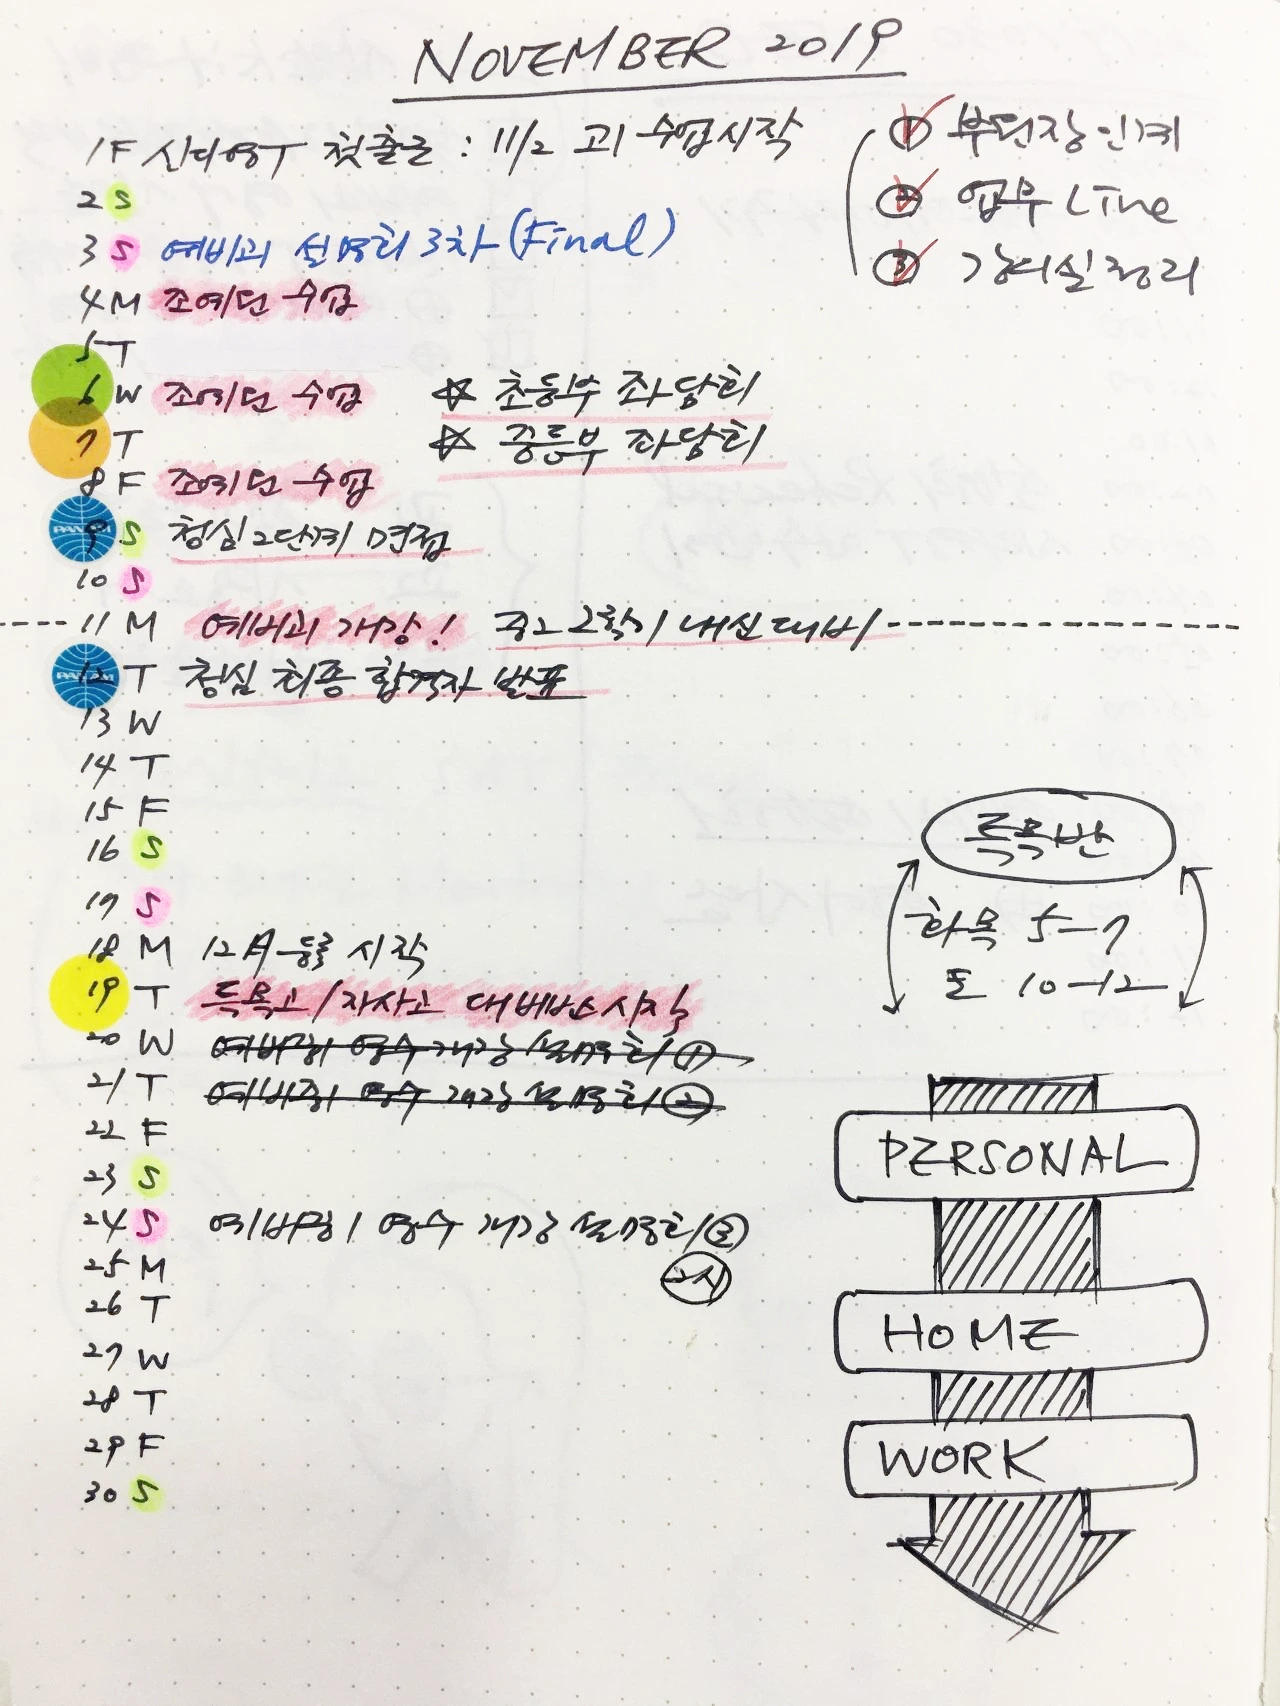 NOVEMBER 2019
1 F 첫출근 : 11/2 고1 수업시작
① 부원장 인계
② 업무 Line
③ 강의실 정리
2 S
3 S 예비고1 설명회 3차 (Final)
4 M 조예던 수업
5 T
6 W 조예던 수업 ☆ 초등부 좌담회
7 T ☆ 중등부 좌담회
8 F 조예던 수업
PAN AM
9 S 청심 2단계 면접
10 S
11 M 예비고1 개강! 중2 2학기 내신대비
PAN AM
12 T 청심 최종 합격자 발표
13 W
14 T
15 F
16 S
17 S
18 M 12月 등록 시작
19 T 특목고/자사고 대비반 시작
20 W 예비중1 영수 개강 설명회 ①
21 T 예비중1 영수 개강 설명회 ②
22 F
23 S
24 S 예비중1 영수 개강 설명회
2시
25 M
26 T
27 W
28 T
29 F
30 S
특목반
화목 5-7
토 10-12
PERSONAL
HOME
WORK